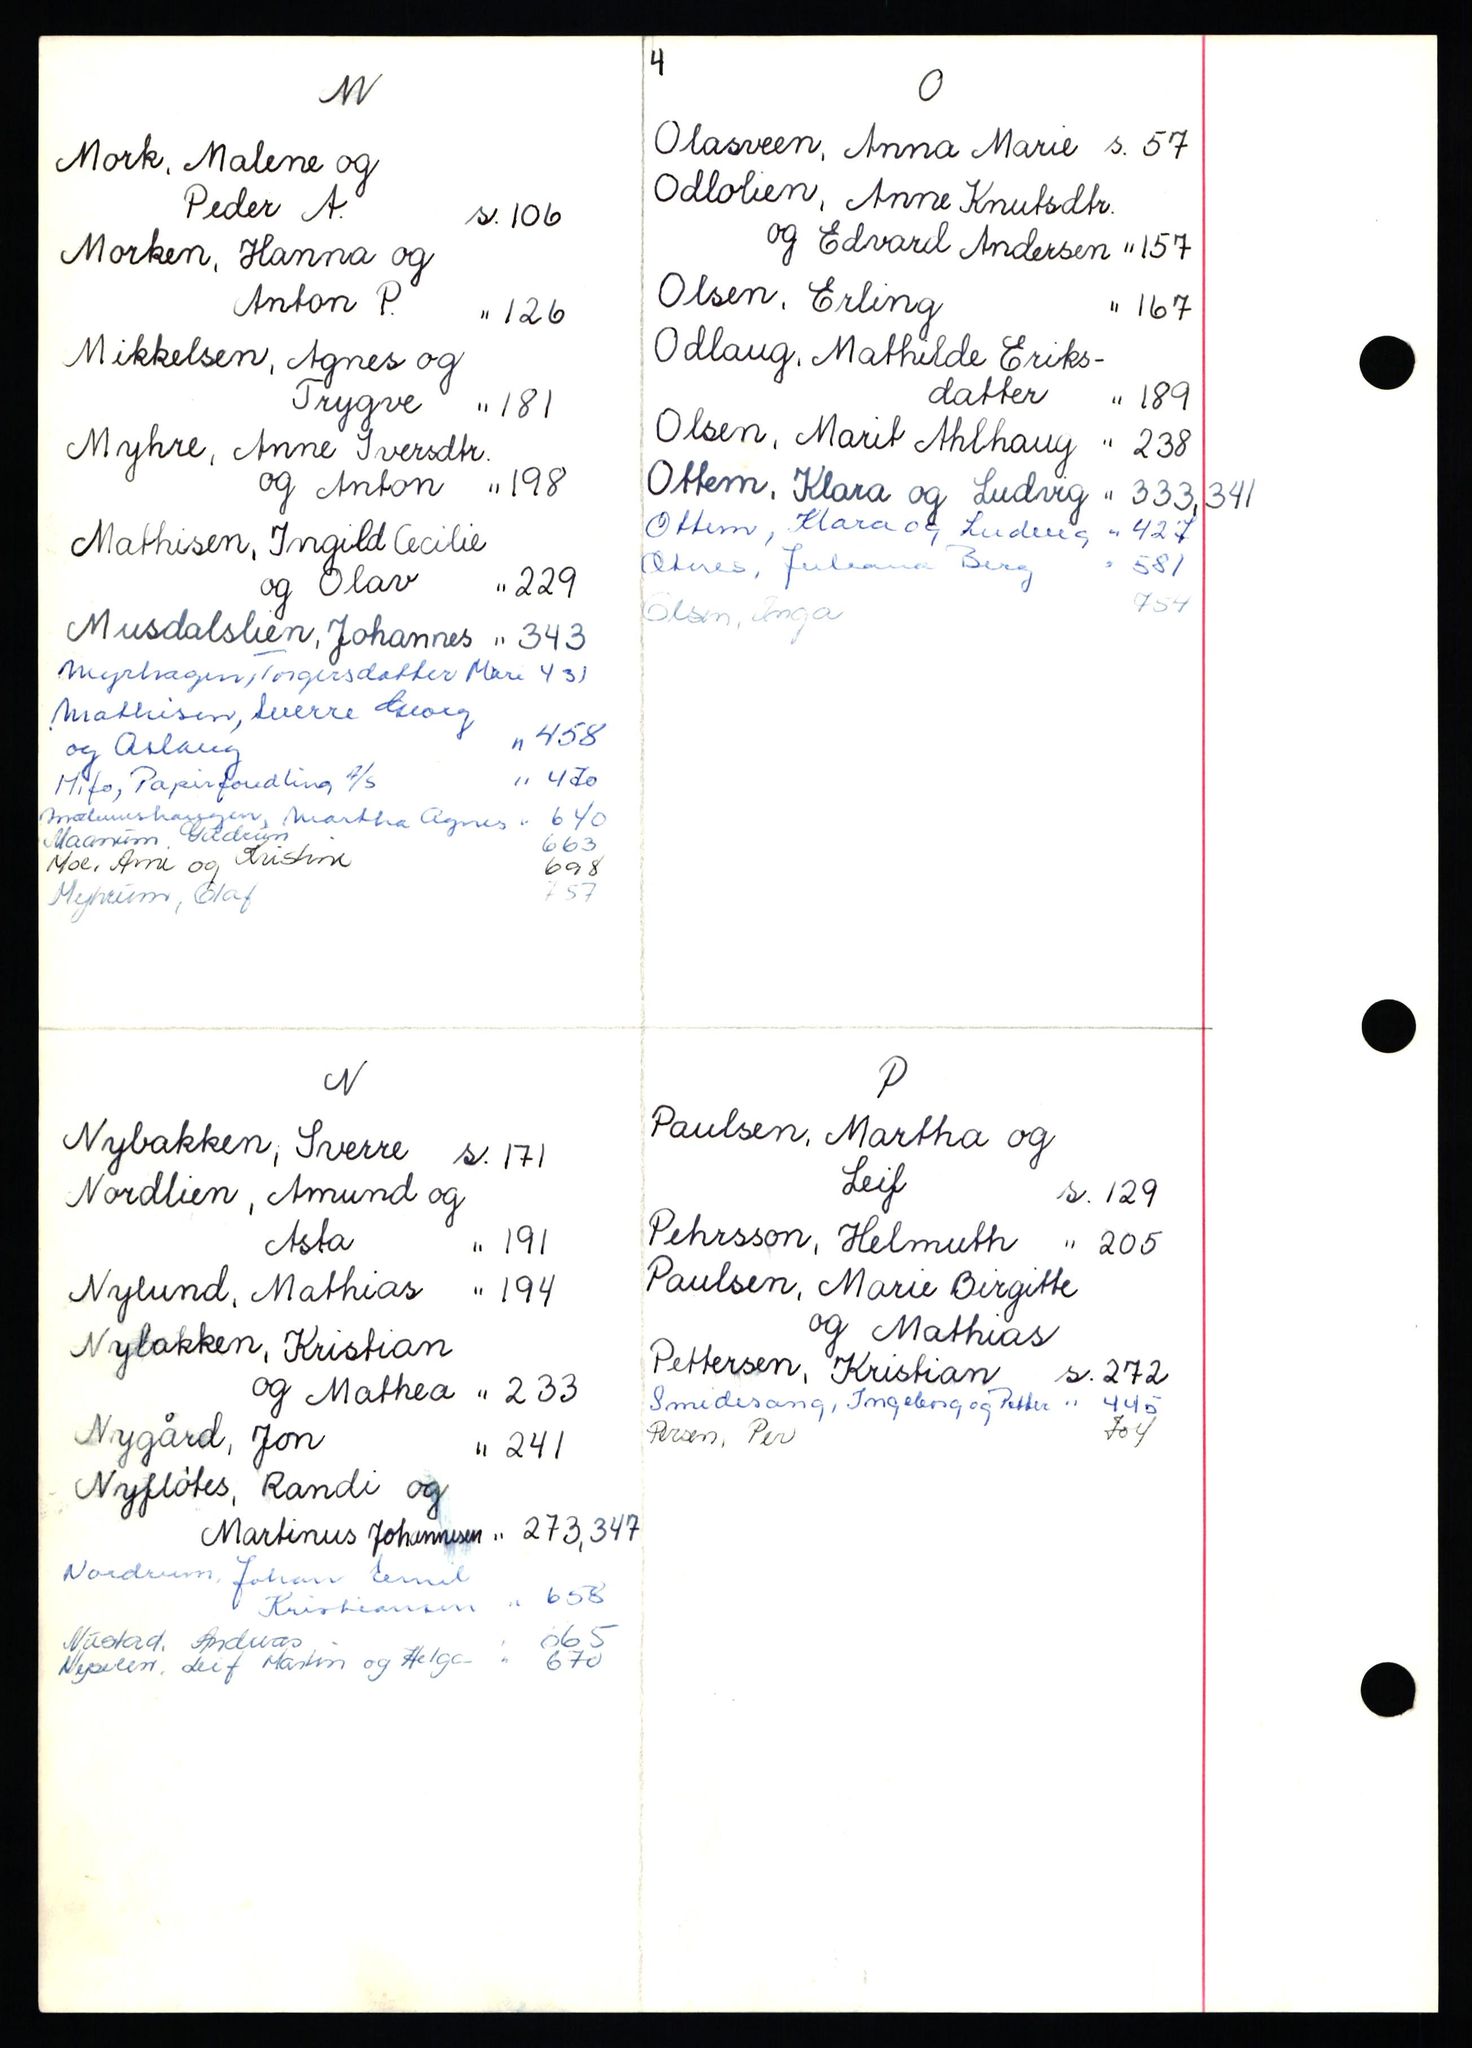 4
M
Mork, Malene og
Peder A. s. 106
Morken, Hanna og
Anton P. " 126
Mikkelsen, Agnes og
Trygve " 181
Myhre, Anne Iversdtr.
og Anton " 198
Mathisen, Ingild Cecilie
og Olav " 229
Musdalslien, Johannes " 343
Myrhagen, Torgersdatter Mari 431
Mathisen, Sverre Georg
og Aslaug " 458
Mifo, Papirforedling A/S " 470
Martha Agnes " 640
Maanum, Gudrun 663
Moe, Arne og Kristine 698
Myhrum, Olaf 757
N
Nybakken, Sverre s. 171
Nordlien, Amund og
Asta " 191
Nylund, Mathias " 194
Nybakken, Kristian
og Mathea " 233
Nygård, Jon " 241
Nyflötes, Randi og
Martinus Johannesen " 273, 347
Nordrum, Johan Emil
Kristiansen " 658
Nustad, Andreas " 665
Leif Martin og Helga " 670
O
Olasveen, Anna Marie s. 57
Odlolien, Anne Knutsdtr.
og Edvard Andersen " 157
Olsen, Erling " 167
Odlaug, Mathilde Eriks-
datter " 189
Olsen, Marit Ahlhaug " 238
Ottem, Klara og Ludvig " 333, 341
Ottem, Klara og Ludvig " 427
Juliana Berg " 581
Olsen, Inga 754
P
Paulsen, Martha og
Leif s. 129
Pehrsson, Helmuth " 205
Paulsen, Marie Birgitte
og Mathias
Pettersen, Kristian s. 272
Smidesang, Ingeborg og Petter " 445
Persen, Per 704